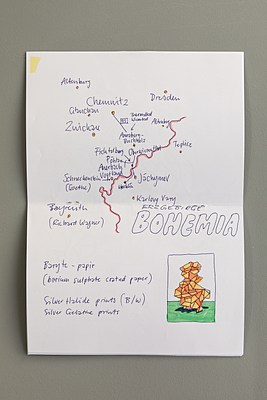 Altenburg
Dresden
Chemnitz
Glauchau
Zwickau
Altenberg
Annaberg-
Buchholz
Teplice
Fichtelberg
Oberwiesenthal
Auerbach
Vogtland
Jáchymov
(Goethe)
Karlovy Vary
Bayreuth
(Richard Wagner)
ERZGEBIRGE
BOHEMIA
Baryte-papir
(barium sulphate coated paper)
Silver Halide prints (B/W)
Silver Gelatine prints